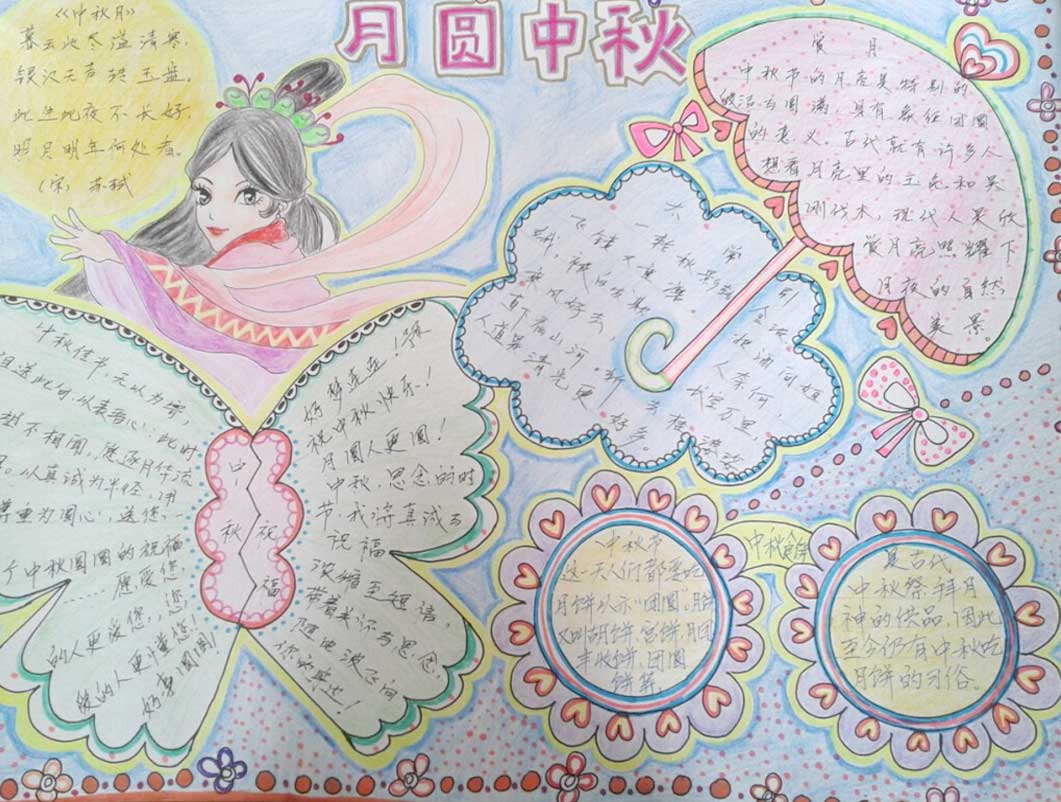 月圆中秋
《中秋月》
暮云收尽溢清寒,
银汉无声转玉盘。
此生此夜不长好,
明月明年何处看。
(宋) 苏轼
赏月
中秋节的月亮是特别的
皎洁与圆满,具有象征团圆
的意义。古代就有许多人
想着月亮里的玉兔和吴
刚伐木,现代人更欣
赏月亮照耀下
月夜的自然
美景
一轮秋影转金波
飞镜又重磨
把酒问姮
被白发欺
人奈何
乘风好去
长空万里
直下看山河
斫去桂
人道是清光更
好多。
中秋佳节,无以为寄,
但送此句,以表吾心:此时
相望不相闻,愿逐月华流
以真诚为半径,用
尊重为圆心,送您
个中秋圆圆的祝福
愿爱您
的人更爱您,您
懂您!
好事圆圆!
中秋
祝福
好梦连连!
祝中秋快乐!
月圆人更圆!
中秋,思念的时
节,我将真诚与
祝福
浓缩至短信,
带着关怀与思念,
随电波飞向
你的身边!
中秋节
这一天人们都要吃
月饼以示“团圆”。月饼
又叫胡饼、宫饼、月团
丰收饼、团圆
饼等,
中秋食俗
是古代
中秋祭拜月
神的供品,因此
至今仍有中秋吃
月饼的习俗。